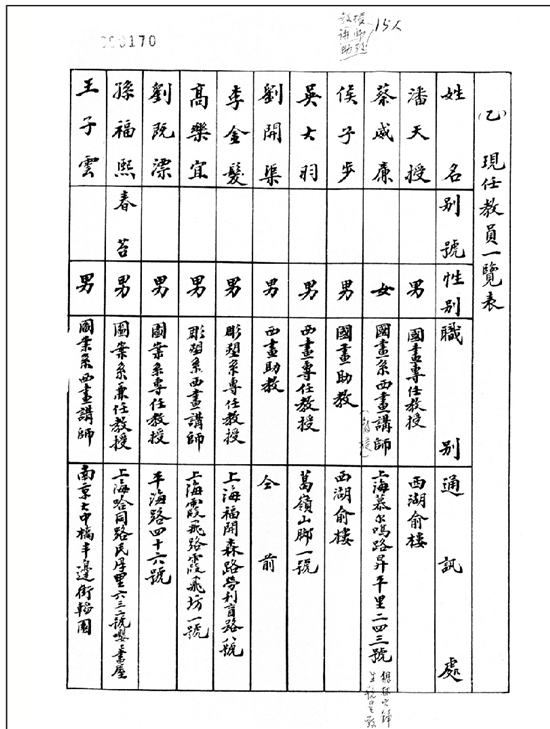 170
15人
(乙)現任教員一覽表
姓名 別號 性別 職別 通訊處
潘天授 男 國畫專任教授 西湖俞樓
蔡威廉 女 國畫系西畫講師 上海慕尔鳴路昇平里二四三號
侯子步 男 國畫助教 西湖俞樓
吳大羽 男 西畫專任教授 葛嶺山脚一號
劉開渠 男 西畫助教 仝前
李金髮 男 彫塑系專任教授 上海福開森路勞利育路八號
高樂宜 男 彫塑系西畫講師 上海霞飛路霞飛坊一號
劉既漂 男 圖案系專任教授 平海路四十六號
孫福熙 春苔 男 圖案系兼任教授 上海哈同路民厚里六三二號嚶嚶書屋
王子雲 男 圖案系西畫講師 南京大中橋半邊街